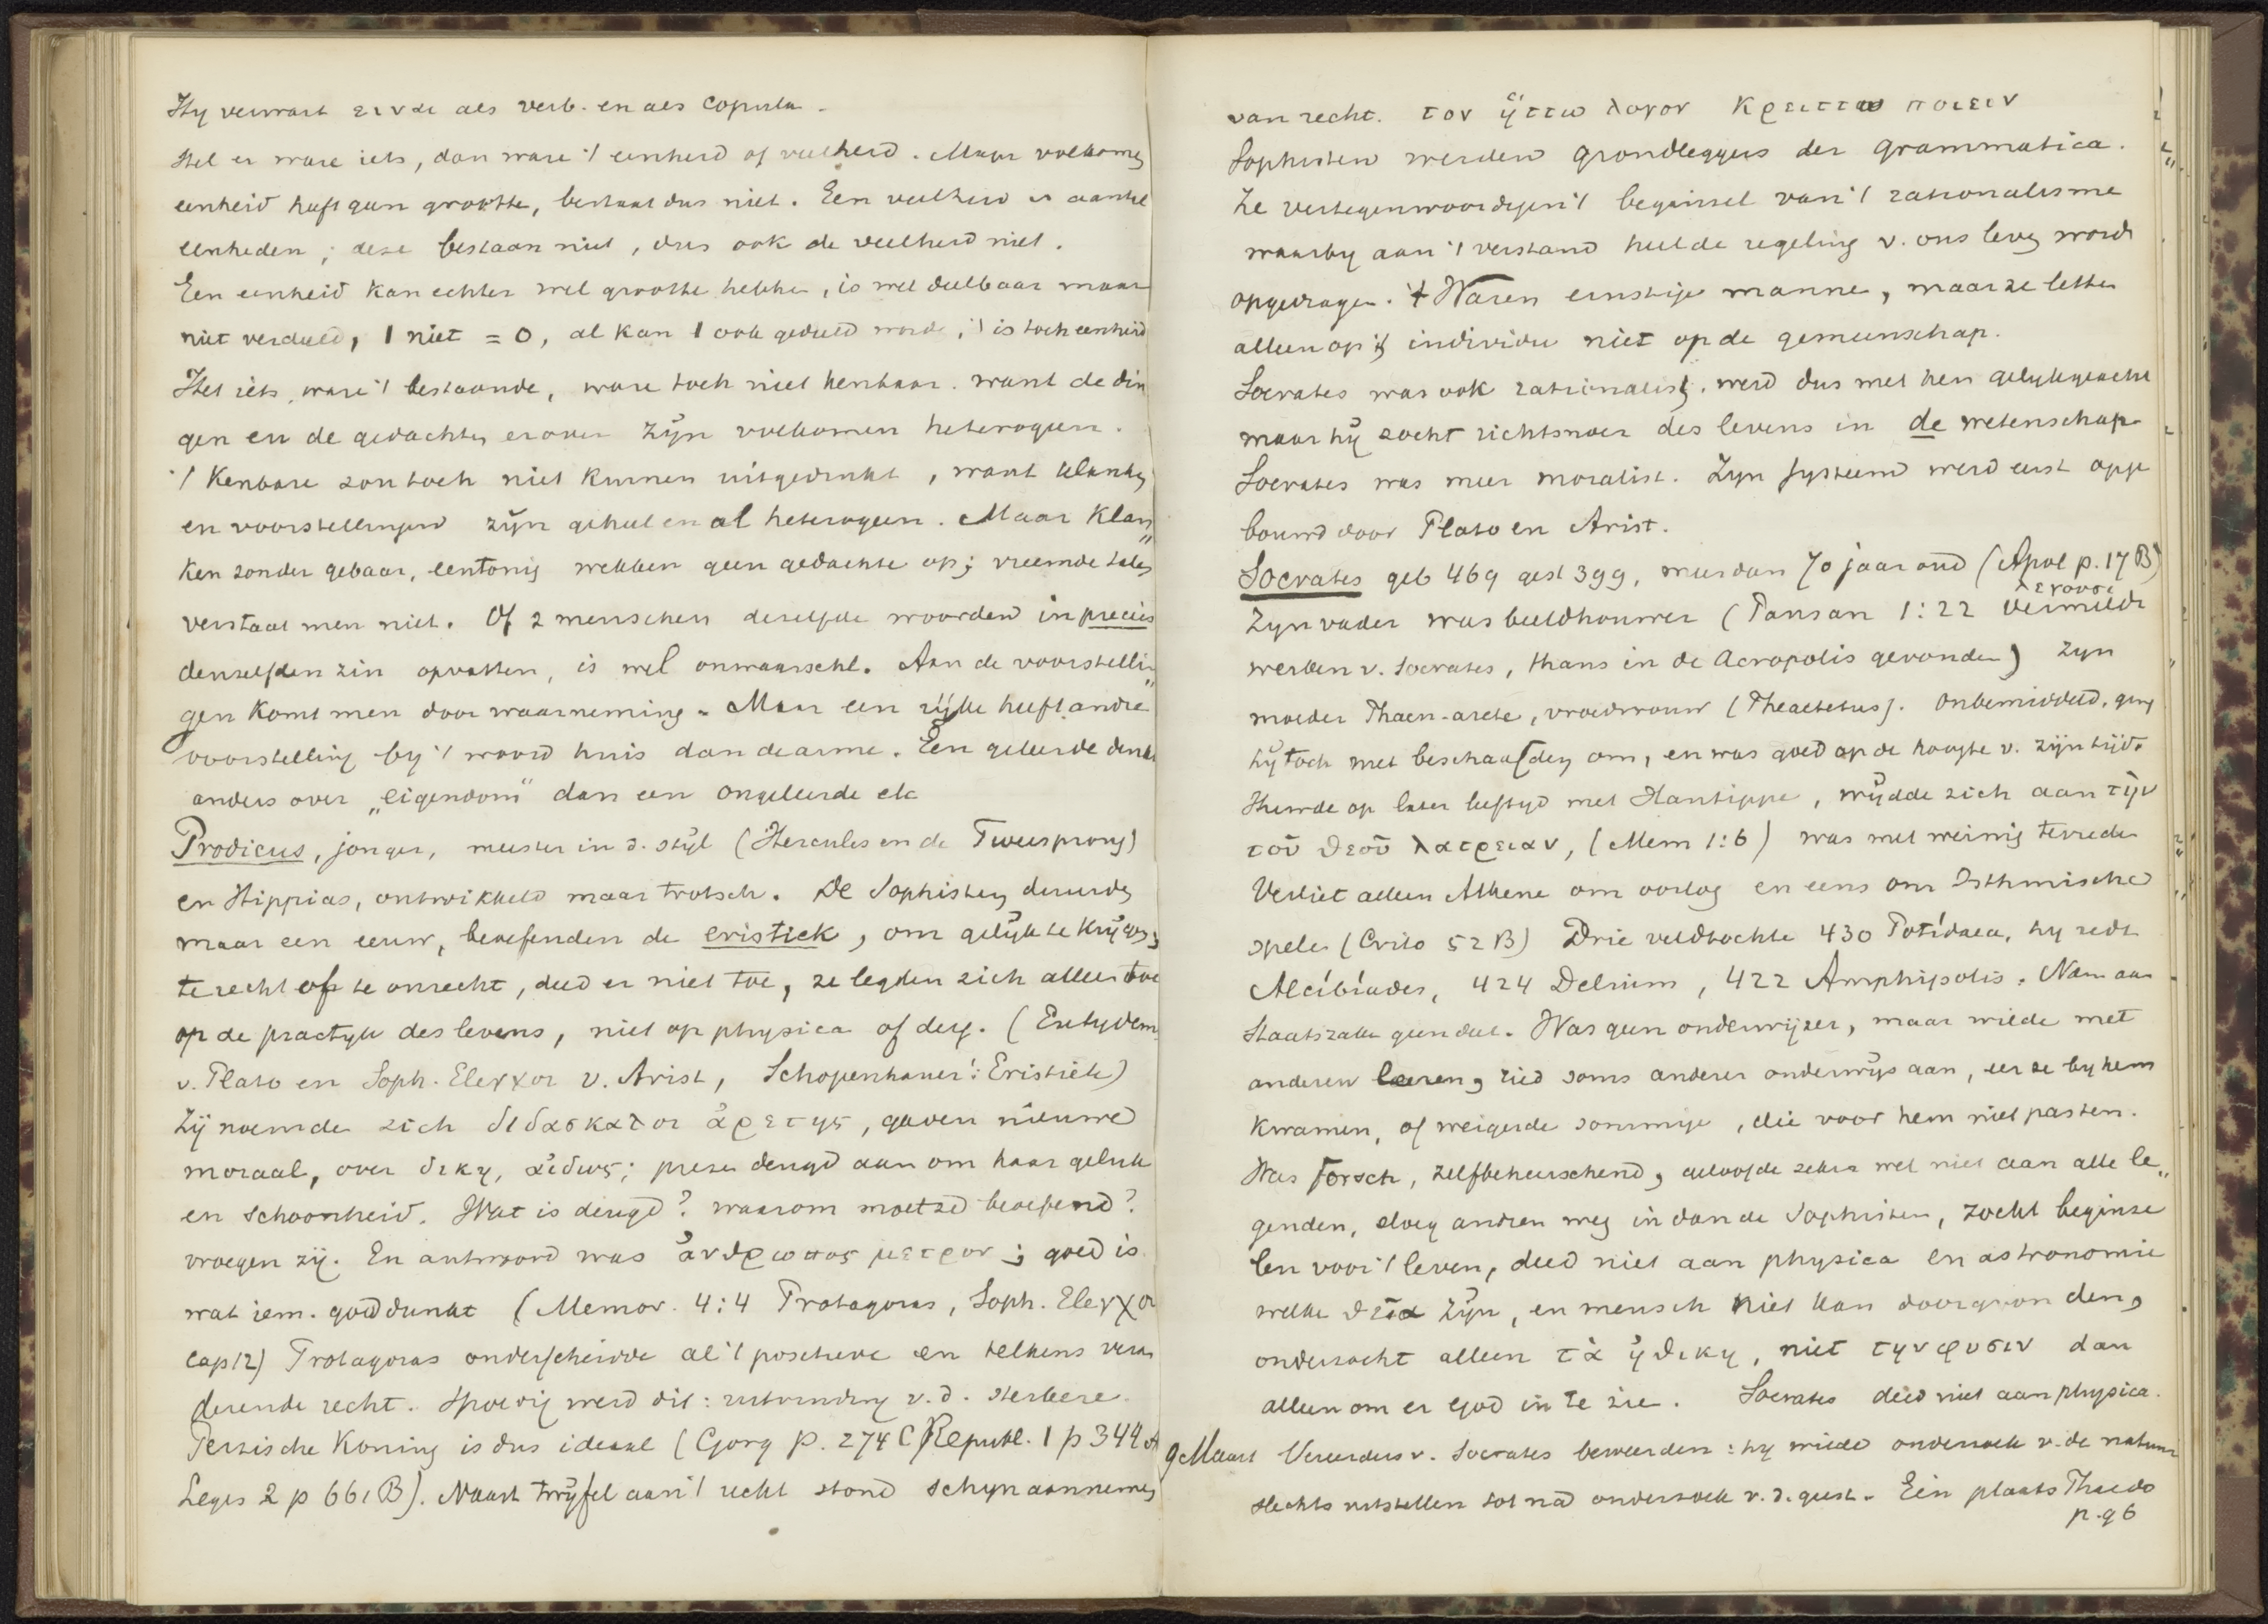 Hy verwart ειναι als verb. en als copula.
Stel er ware iets, dan ware 't eenheid of veelheid. Maar volkomen
eenheid heeft geen grootte, bestaat dus niet. Een veelheid is aantal
eenheden; deze bestaan niet, dus ook de veelheid niet.
Een eenheid kan echter wel grootte hebben, is wel deelbaar maar
niet verdeeld, 1 niet = 0, al kan 1 ook gedeeld worde, 't is toch eenheid
Stel iets, ware 't bestaande, ware toch niet kenbaar. want de din
gen en de gedachten erover zijn volkomen heterogeen.
't Kenbare zou toch niet kunnen uitgedrukt, want klanken
en voorstellingen zijn geheel en al heterogeen. Maar klan"
ken zonder gebaar, eentonig wekken geen gedachte op; vreemde talen
verstaat men niet. Of 2 menschen dezelfde woorden in precies
denzelfden zin opvatten, is wel onwaarschl. Aan de voorstellin"
gen komt men door waarneming. Maar een rijke heeft andre
voorstelling by 't woord huis dan de arme. Een geleerde denkt
anders over „eigendom" dan een ongeleerde etc
Prodicus, jonger, meester in d. stijl (Hercules en de Tweesprong)
en Hippias, ontwikkeld maar trotsch. De Sophisten duurden
maar een eeuw, beoefenden de eristiek, om gelijk te krijgen,
te recht of te onrecht, deed er niet toe, ze legden zich alleen toe
op de practyk des levens, niet op physica of derg. (Eutydem.
v. Plato en Soph. Elενχοι v. Arist, Schopenhauer: Eristiek)
Zij noemde zich διδασκαλοι ἀρετης, gaven nieuwe
moraal, over δικη, αἰδως; preze deugd aan om haar geluk
en schoonheid. Wat is deugd? waarom moet ze beoefend?
vroegen zij. En antwoord was ἀνθρωπος μετρον; goed is
wat iem. goeddunkt (Memor. 4:4 Protagoras, Soph. Elενχοι
cap 12) Protagoras onderscheidde al 't positieve en telkens veran
derende recht. Spoedig werd dit: uitvinding v. d. sterkere.
Perzische Koning is dus ideaal (Gorg p. 274 C Republ. 1 p 344 A
Leges 2 p 661 B). Naast twijfel aan 't recht stond schijn aannemen
van recht. τον ἡττω λογον κρειττω ποιειν
Sophisten werden grondleggers der grammatica.
Ze vertegenwoordigen 't beginsel van 't rationalisme
waarby aan 't verstand heel de regeling v. ons leven wordt
opgedragen. Waren ernstige manne, maar ze lette
alleen op 't individu niet op de gemeenschap.
Socrates was ook rationalist, werd dus met hen gelykgeacht
maar hij zocht richtsnoer des levens in de wetenschap
Socrates was meer moralist. Zyn systeem werd eerst opge
bouwd door Plato en Arist.
Socrates geb 469 gest 399, was dan 70 jaar oud (Apol p. 17 B)
Zyn vader was beeldhouwer (Pausan 1:22 vermeldt
werken v. Socrates, thans in de Acropolis gevonden) Zyn
moeder Phaen-arete, vroedvrouw (Theaetetus). Onbemiddeld, ging
hij toch met beschaafden om, en was goed op de hoogte v. zijn tijd.
Huwde op later leeftyd met Xantippe, wijdde zich aan τὴν
τοῦ θεοῦ λατρειαν, (Mem 1:6) was met weinig tevrede
Verliet alleen Athene om oorlog en eens om Isthmische
spele (Crito 52 B) Drie veldtochte 430 Potidaea, hy redt
Alcibiades, 424 Delium, 422 Amphipolis. Nam aan
Staatszake geen deel. Was geen onderwijzer, maar wilde met
anderen leeren, ried soms anderer onderwijs aan, eer ze by hem
kwamen, of weigerde sommige, die voor hem niet pasten.
Was forsch, zelfbeheerschend, geloofde zeker wel niet aan alle le"
genden, sloeg andren weg in dan de Sophisten, zocht beginse
len voor 't leven, deed niet aan physica en astronomie
welke θεῖα zijn, en mensch niet kan doorgronden,
onderzocht alleen τὰ ἠθικη, niet την φυσιν dan
alleen om er God in te zie. Socrates deed niet aan physica.
9 Maart Vereerders v. Socrates beweerden: hy wilde onderzoek v. de natuur
slechts uitstellen tot na onderzoek v. d. geest. Eén plaats Phaedo
p. 96